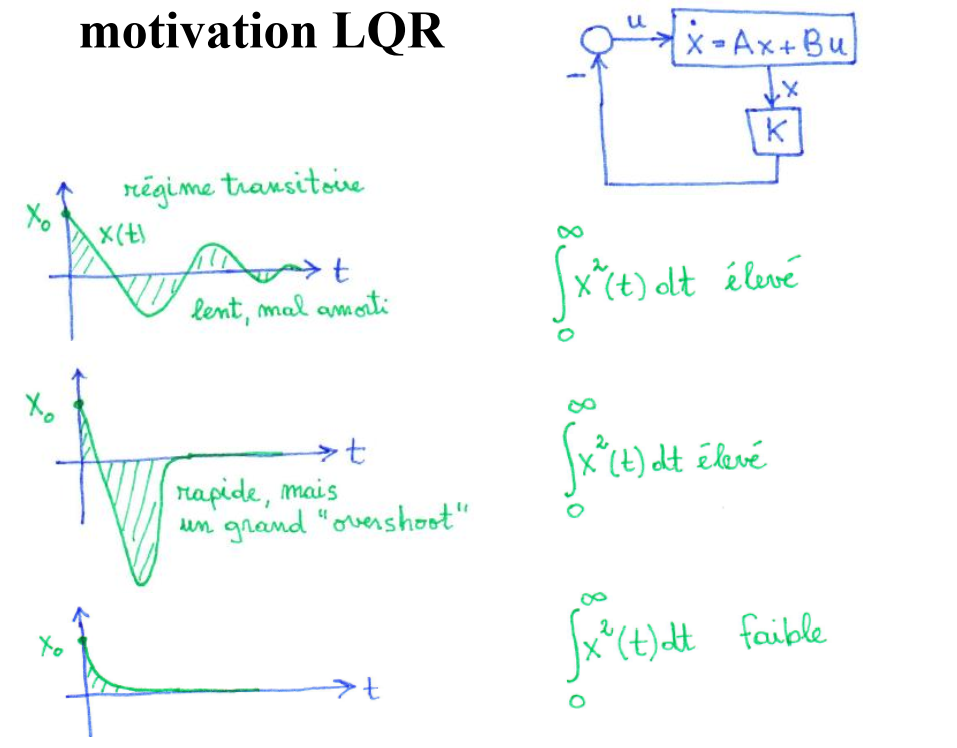 motivation LQR
u
ẋ = Ax + Bu
−
x
K
régime transitoire
x₀
x(t)
t
lent, mal amorti
∫₀^∞ x²(t) dt élevé
x₀
t
rapide, mais
un grand "overshoot"
∫₀^∞ x²(t) dt élevé
x₀
t
∫₀^∞ x²(t) dt faible